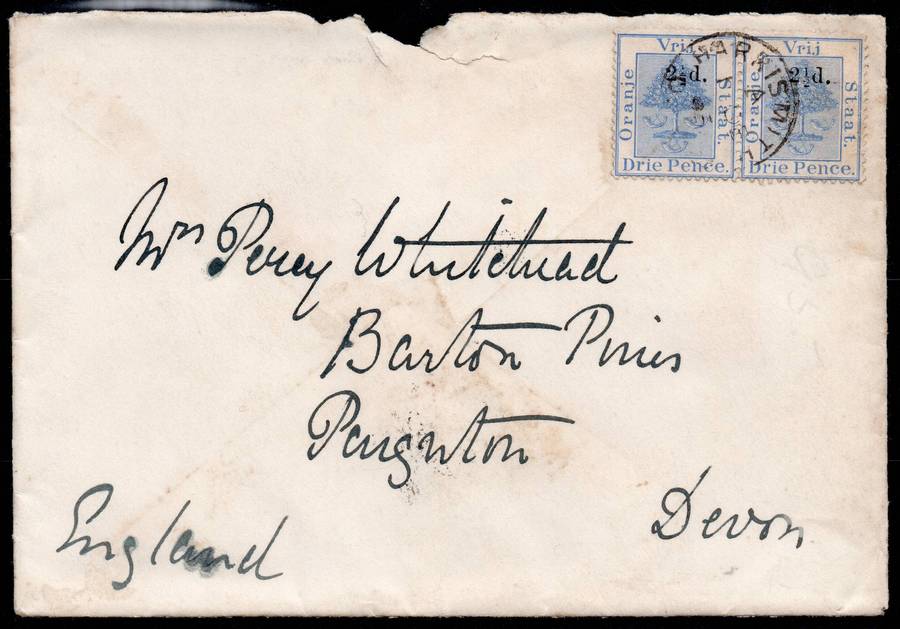 Vrij
Oranje
Staat.
2½d.
Drie Pence.
Vrij
Oranje
Staat.
2½d.
Drie Pence.
HARRISMITH
Mrs Percy Whitehead
Barton Pines
Paignton
Devon
England